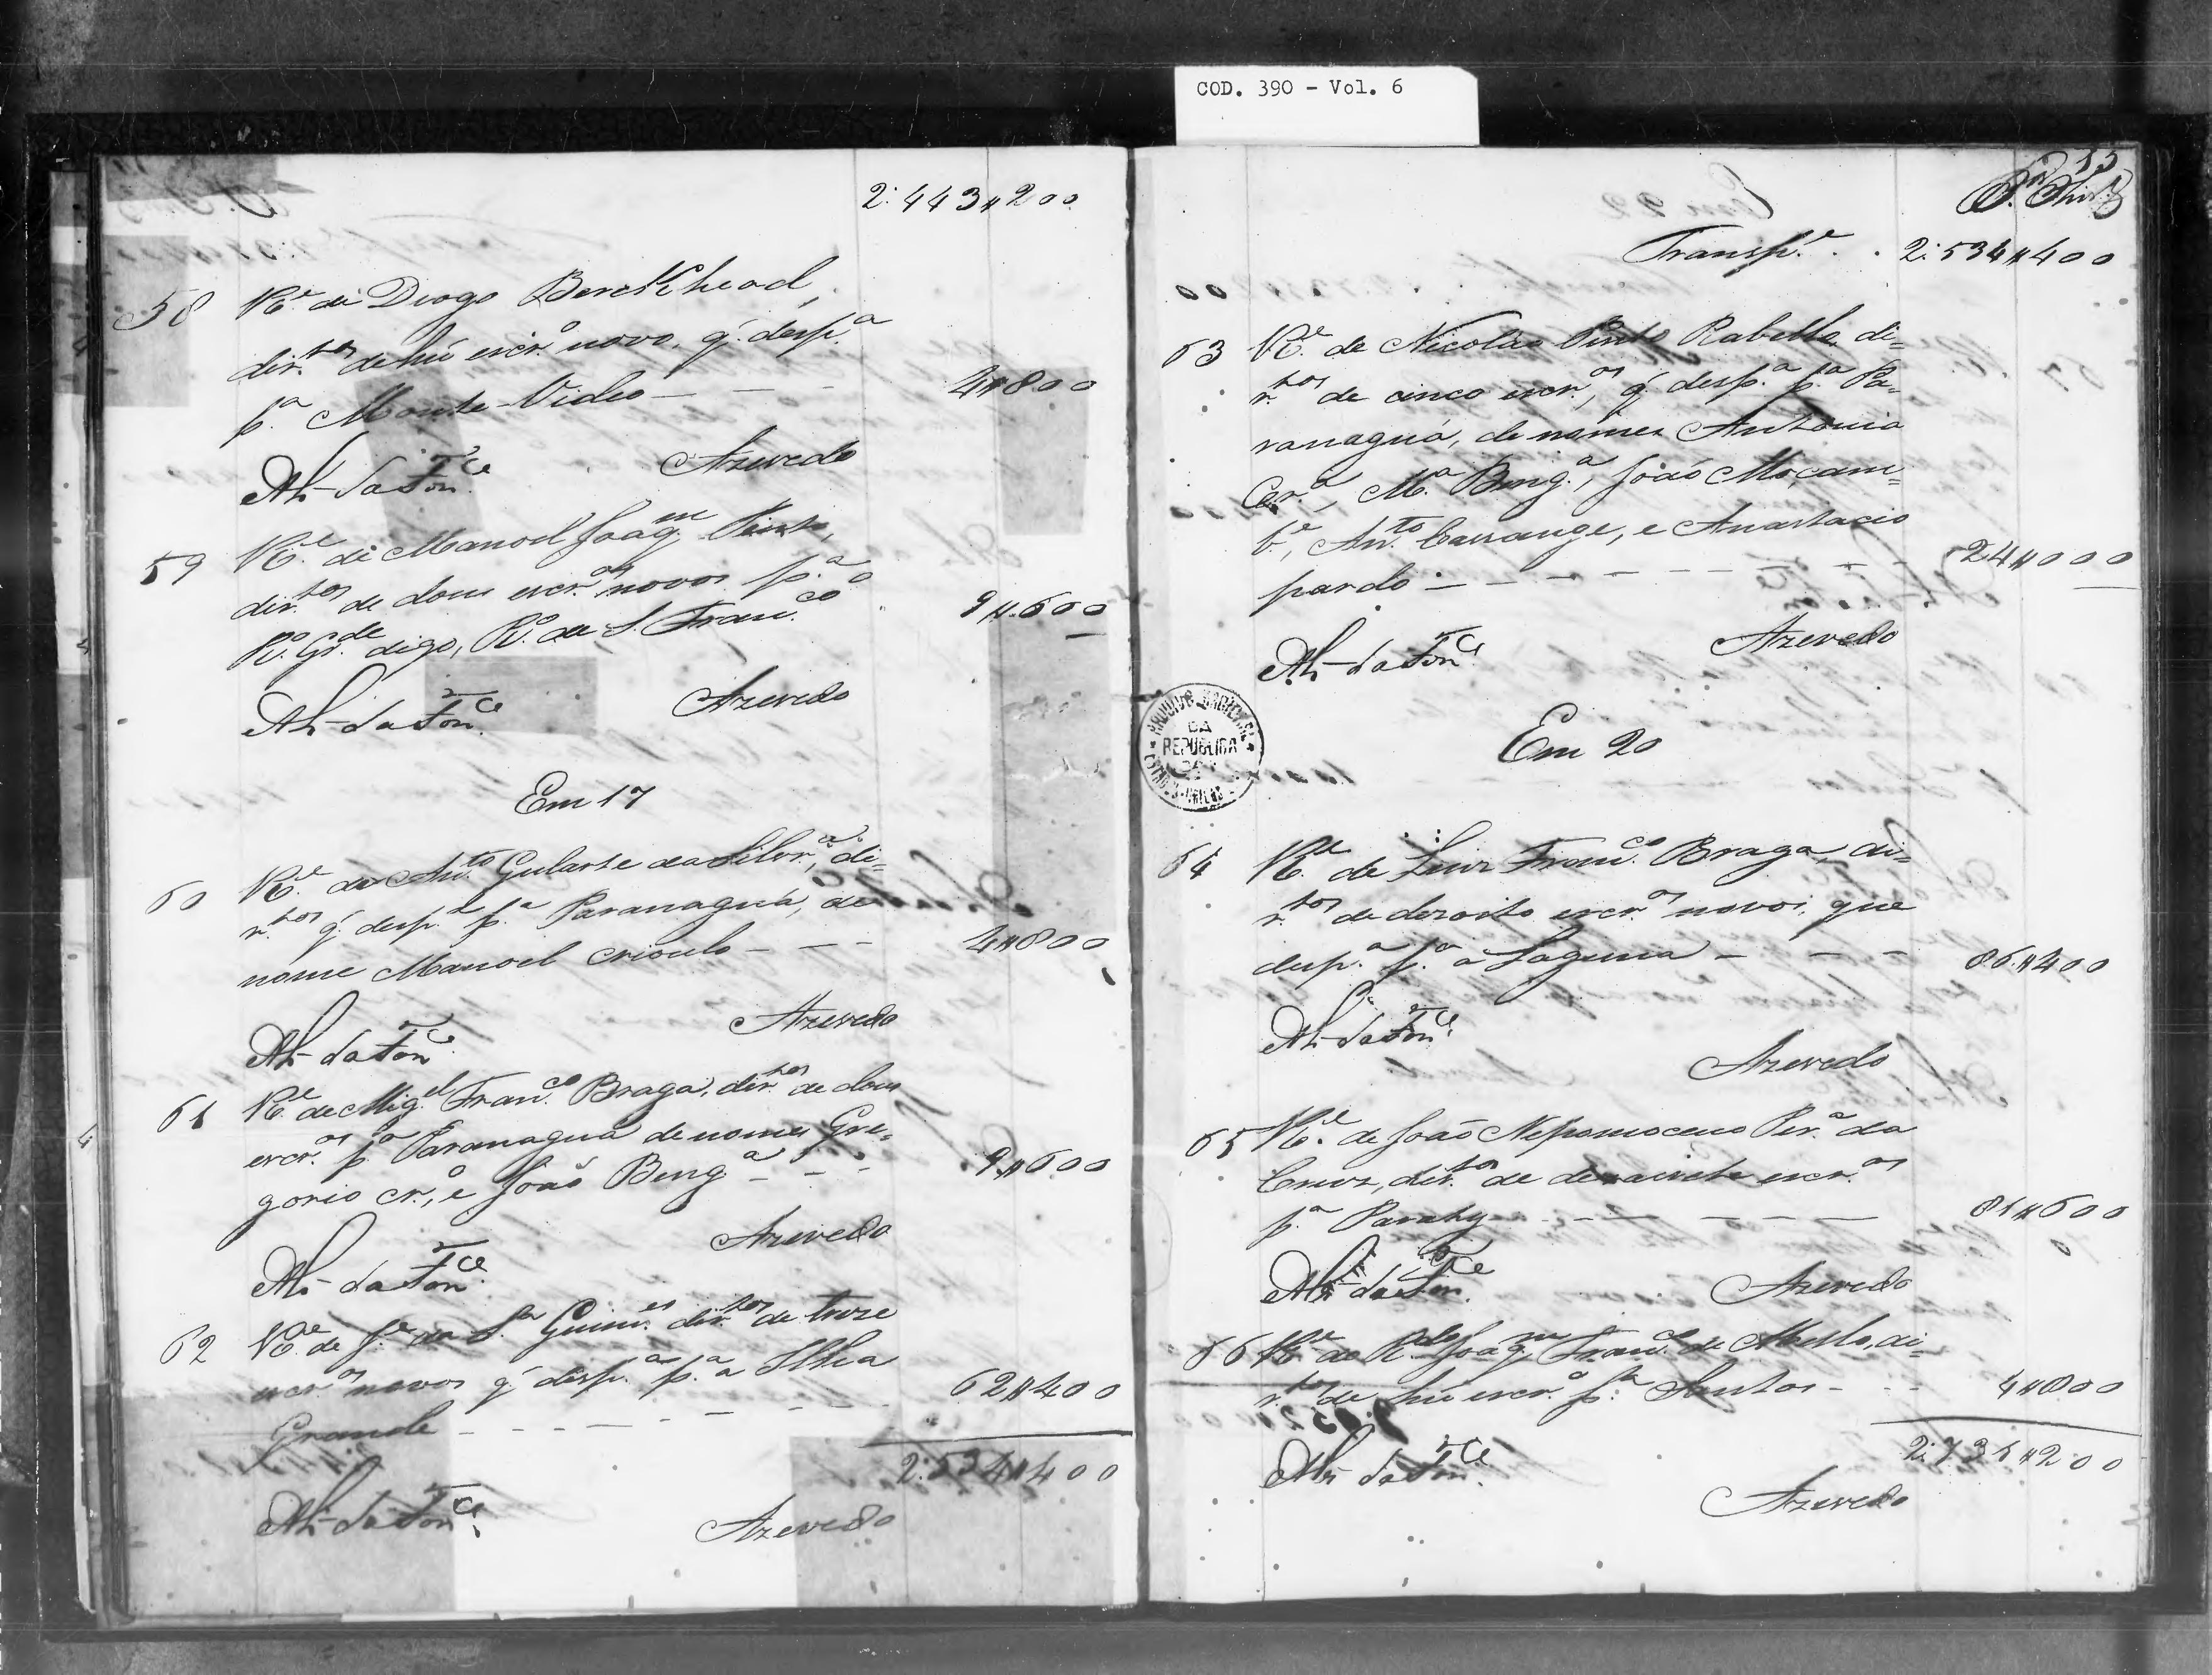 COD. 390 - Vol. 6
2:443#200
58 R.e de Diogo Berckhead,
dir.tos de hũ escr.o novo, q̃ desp.a
p.a Monte Video — — — 4#800
da Fon.ce Azevedo
59 R.e de Manoel Joaq.m Pinto,
dir.tos de dous escr.os novos p.a o
R.o Gr.de digo, R.o de S. Fran.co 9#600
da Fon.ce Azevedo
Em 17
60 R.e de An.to Gularte da Silvr.a, di=
r.tos q̃ desp.a p.a Paranaguá, de
nome Manoel crioulo — — — 4#800
da Fon.ce Azevedo
61 R.e de Mig.el Fran.co Braga, dir.tos de dous
escr.os p.a Paranaguá de nomes Gre=
gorio cr.o, e João Beng.a — — 9#600
da Fon.ce Azevedo
62 R.e de J.e da S.a Guim.es dir.tos de treze
escr.os novos q̃ desp.a p.a a Ilha
Grande — — — — — — 62#400
2:534#400
da Fon.ce Azevedo
15
Transp.e . . 2:534#400
63 R.e de Nicoláo Pinto Rabello, di=
r.tos de cinco escr.os, q̃ desp.a p.a Pa=
ranaguá, de nomes Antonia
Cr.a, M.a Beng.a, João Moçam=
b.e, An.to Cassange, e Anastacio
pardo — — — — — — — 24#000
da Fon.ce Azevedo
ARQUIVO NACIONAL
DA
REPUBLICA
Em 20
64 R.e de Luiz Fran.co Braga, di=
r.tos de dezoito escr.os novos, que
desp.a p.a a Laguna — — — 86#400
da Fon.ce
Azevedo
65 R.e de João Nepomoceno Per.a da
Cruz, dir.tos de dezasete escr.os
p.a Paraty — — — — — 81#600
da Fon.ce Azevedo
66 R.e de R.do Joaq.m Fran.co de Mello, di=
r.tos de hũ escr.o p.a Santos — — 4#800
2:731#200
da Fon.ce
Azevedo